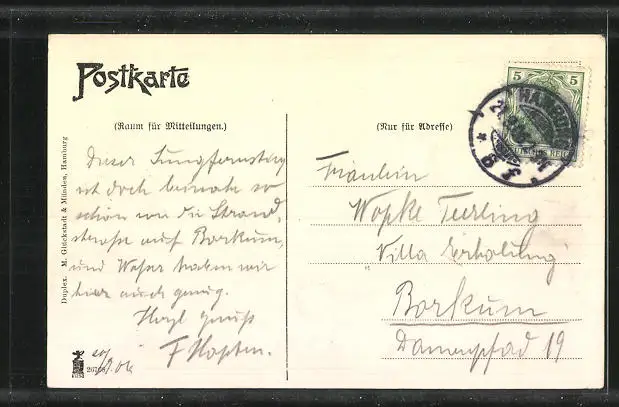 Postkarte
(Raum für Mitteilungen.)
(Nur für Adresse)
Dieser Jungfernstieg
ist doch beinahe so
schön wie die Strand-
straße auf Borkum,
und Wasser haben wir
hier auch genug.
Herzl. Gruß
F.
Fräulein
Wopke Teerling
Villa Erholung
Borkum
Damenpfad 19
Duplex. M. Glückstadt & Münden, Hamburg
5 5
DEUTSCHES REICH
HAMBURG
26768